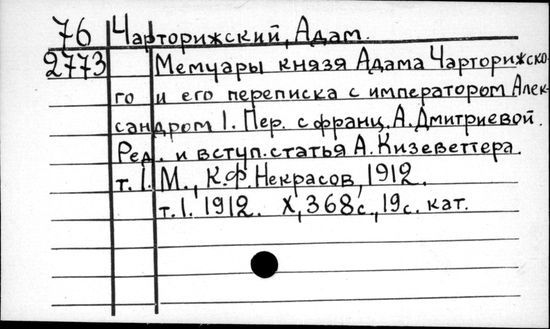 76 Чарторижский, Адам.
2773 Мемуары князя Адама Чарторижско-
го и его переписка с императором Алек-
сандром I. Пер. с франц. А. Дмитриевой.
Ред. и вступ. статья А. Кизеветтера.
т. I. М., К.Ф. Некрасов, 1912.
т. I. 1912. X, 368 с., 19 с. кат.